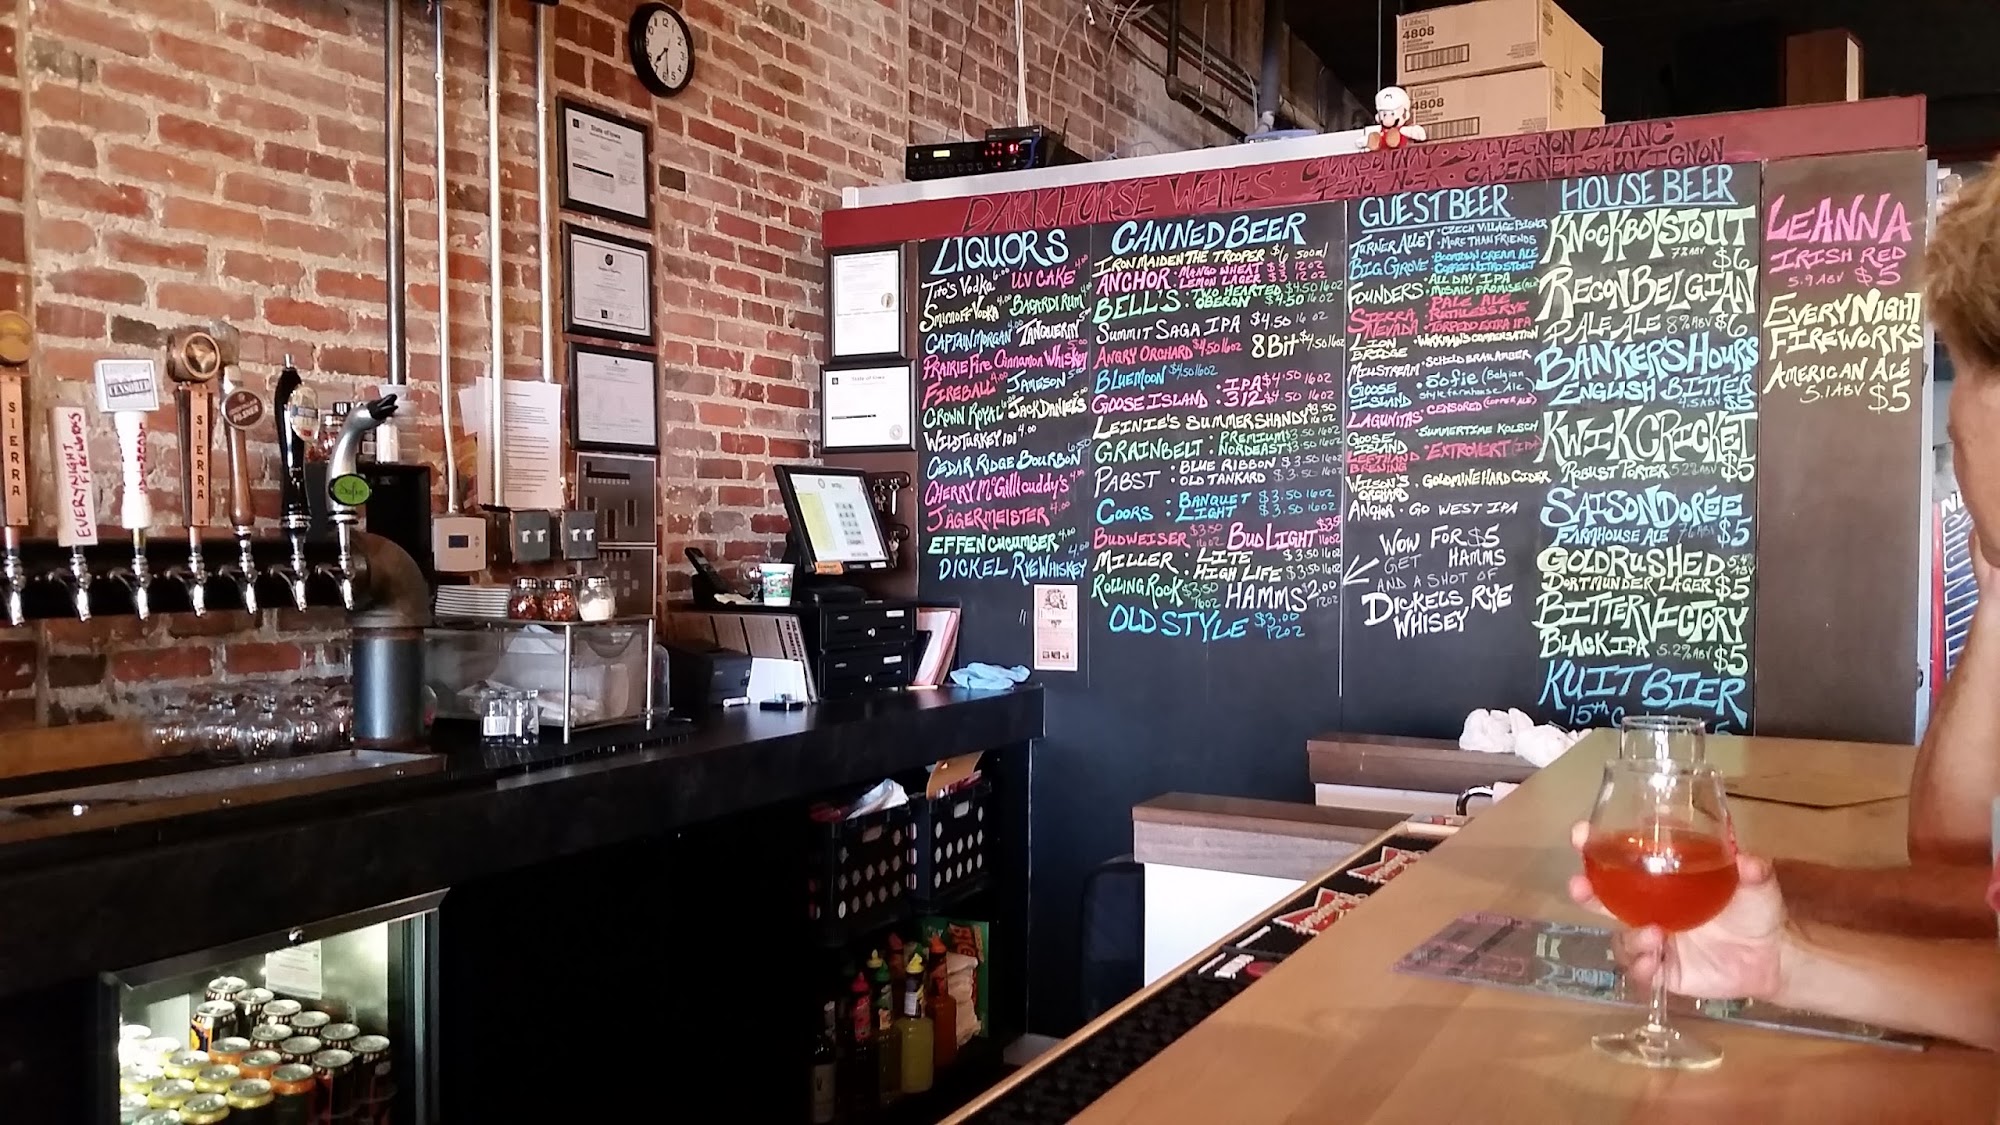 Libbey
4808
Libbey
4808
State of Iowa
State of Iowa
DARKHORSE WINES: CHARDONNAY · SAUVIGNON BLANC
PINOT NOIR · CABERNET SAUVIGNON
LIQUORS
TITO'S VODKA 6.00 UV CAKE 4.00
SMIRNOFF VODKA 4.00 BACARDI RUM 4.00
CAPTAIN MORGAN 4.00 TANQUERAY 5.00
PRAIRIE FIRE CINNAMON WHISKEY 5.00
FIREBALL 4.00 JAMESON 5.00
CROWN ROYAL 6.00 JACK DANIELS
WILD TURKEY 101 4.00
CEDAR RIDGE BOURBON 6.50
CHERRY McGILLICUDDY'S 4.00
JÄGERMEISTER 4.00
EFFEN CUCUMBER 4.00
DICKEL RYE WHISKEY 4.00
CANNED BEER
IRON MAIDEN THE TROOPER $6 500ml
ANCHOR · MANGO WHEAT 12 OZ
LEMON LAGER 12 OZ
BELL'S : TWO HEARTED $4.50 16 OZ
OBERON $4.50 16 OZ
SUMMIT SAGA IPA $4.50 16 OZ
ANGRY ORCHARD $4.50 16 OZ 8 BIT $4.50 16 OZ
BLUEMOON $4.50 16 OZ
GOOSE ISLAND : IPA $4.50 16 OZ
312 $4.50 16 OZ
LEINIE'S SUMMER SHANDY $3.50 16 OZ
GRAINBELT : PREMIUM $3.50 16 OZ
NORDEAST $3.50 16 OZ
PABST : BLUE RIBBON $3.50 16 OZ
OLD TANKARD $3.50 16 OZ
COORS : BANQUET $3.50 16 OZ
LIGHT $3.50 16 OZ
BUDWEISER $3.50 16 OZ BUD LIGHT $3.50 16 OZ
MILLER : LITE $3.50 16 OZ
HIGH LIFE $3.50 16 OZ
ROLLING ROCK $3.50 16 OZ HAMMS $2.00 12 OZ
OLD STYLE $3.00 12 OZ
GUEST BEER
TURNER ALLEY · CZECH VILLAGE PILSNER
· MORE THAN FRIENDS
BIG GROVE · BOOMTOWN CREAM ALE
COFFEE NITRO STOUT
FOUNDERS · ALL DAY IPA
· MOSAIC PROMISE (ALE)
SIERRA NEVADA · PALE ALE
· RUTHLESS RYE
· TORPEDO EXTRA IPA
LION BRIDGE · WORKMAN'S COMPENSATION
MILLSTREAM · SCHILD BRAU AMBER
GOOSE ISLAND · Sofie (Belgian style farmhouse Ale)
LAGUNITAS · CENSORED (COPPER ALE)
GOOSE ISLAND · SUMMERTIME KOLSCH
LEFTHAND BREWING · EXTROVERT (IPA)
WILSON'S ORCHARD · GOLDMINE HARD CIDER
ANCHOR · GO WEST IPA
WOW FOR $5
GET HAMMS
AND A SHOT OF
DICKELS RYE
WHISEY
HOUSE BEER
KNOCKBOY STOUT
7.2 ABV $6
RECON BELGIAN
PALE ALE 8% ABV $6
BANKER'S HOURS
ENGLISH BITTER
4.5 ABV $5
KWIK CRICKET
ROBUST PORTER 5.2% ABV $5
SAISON DORÉE
FARMHOUSE ALE 7.6 ABV $5
GOLD RUSHED
DORTMUNDER LAGER $5
BITTER VICTORY
BLACK IPA 5.2% ABV $5
KUIT BIER
15th
LEANNA
IRISH RED
5.9 ABV $5
EVERY NIGHT
FIREWORKS
AMERICAN ALE
5.1 ABV $5
SIERRA
EVERY NIGHT
FIREWORKS
CENSORED
SIERRA
PILSNER
Sofie
BIG